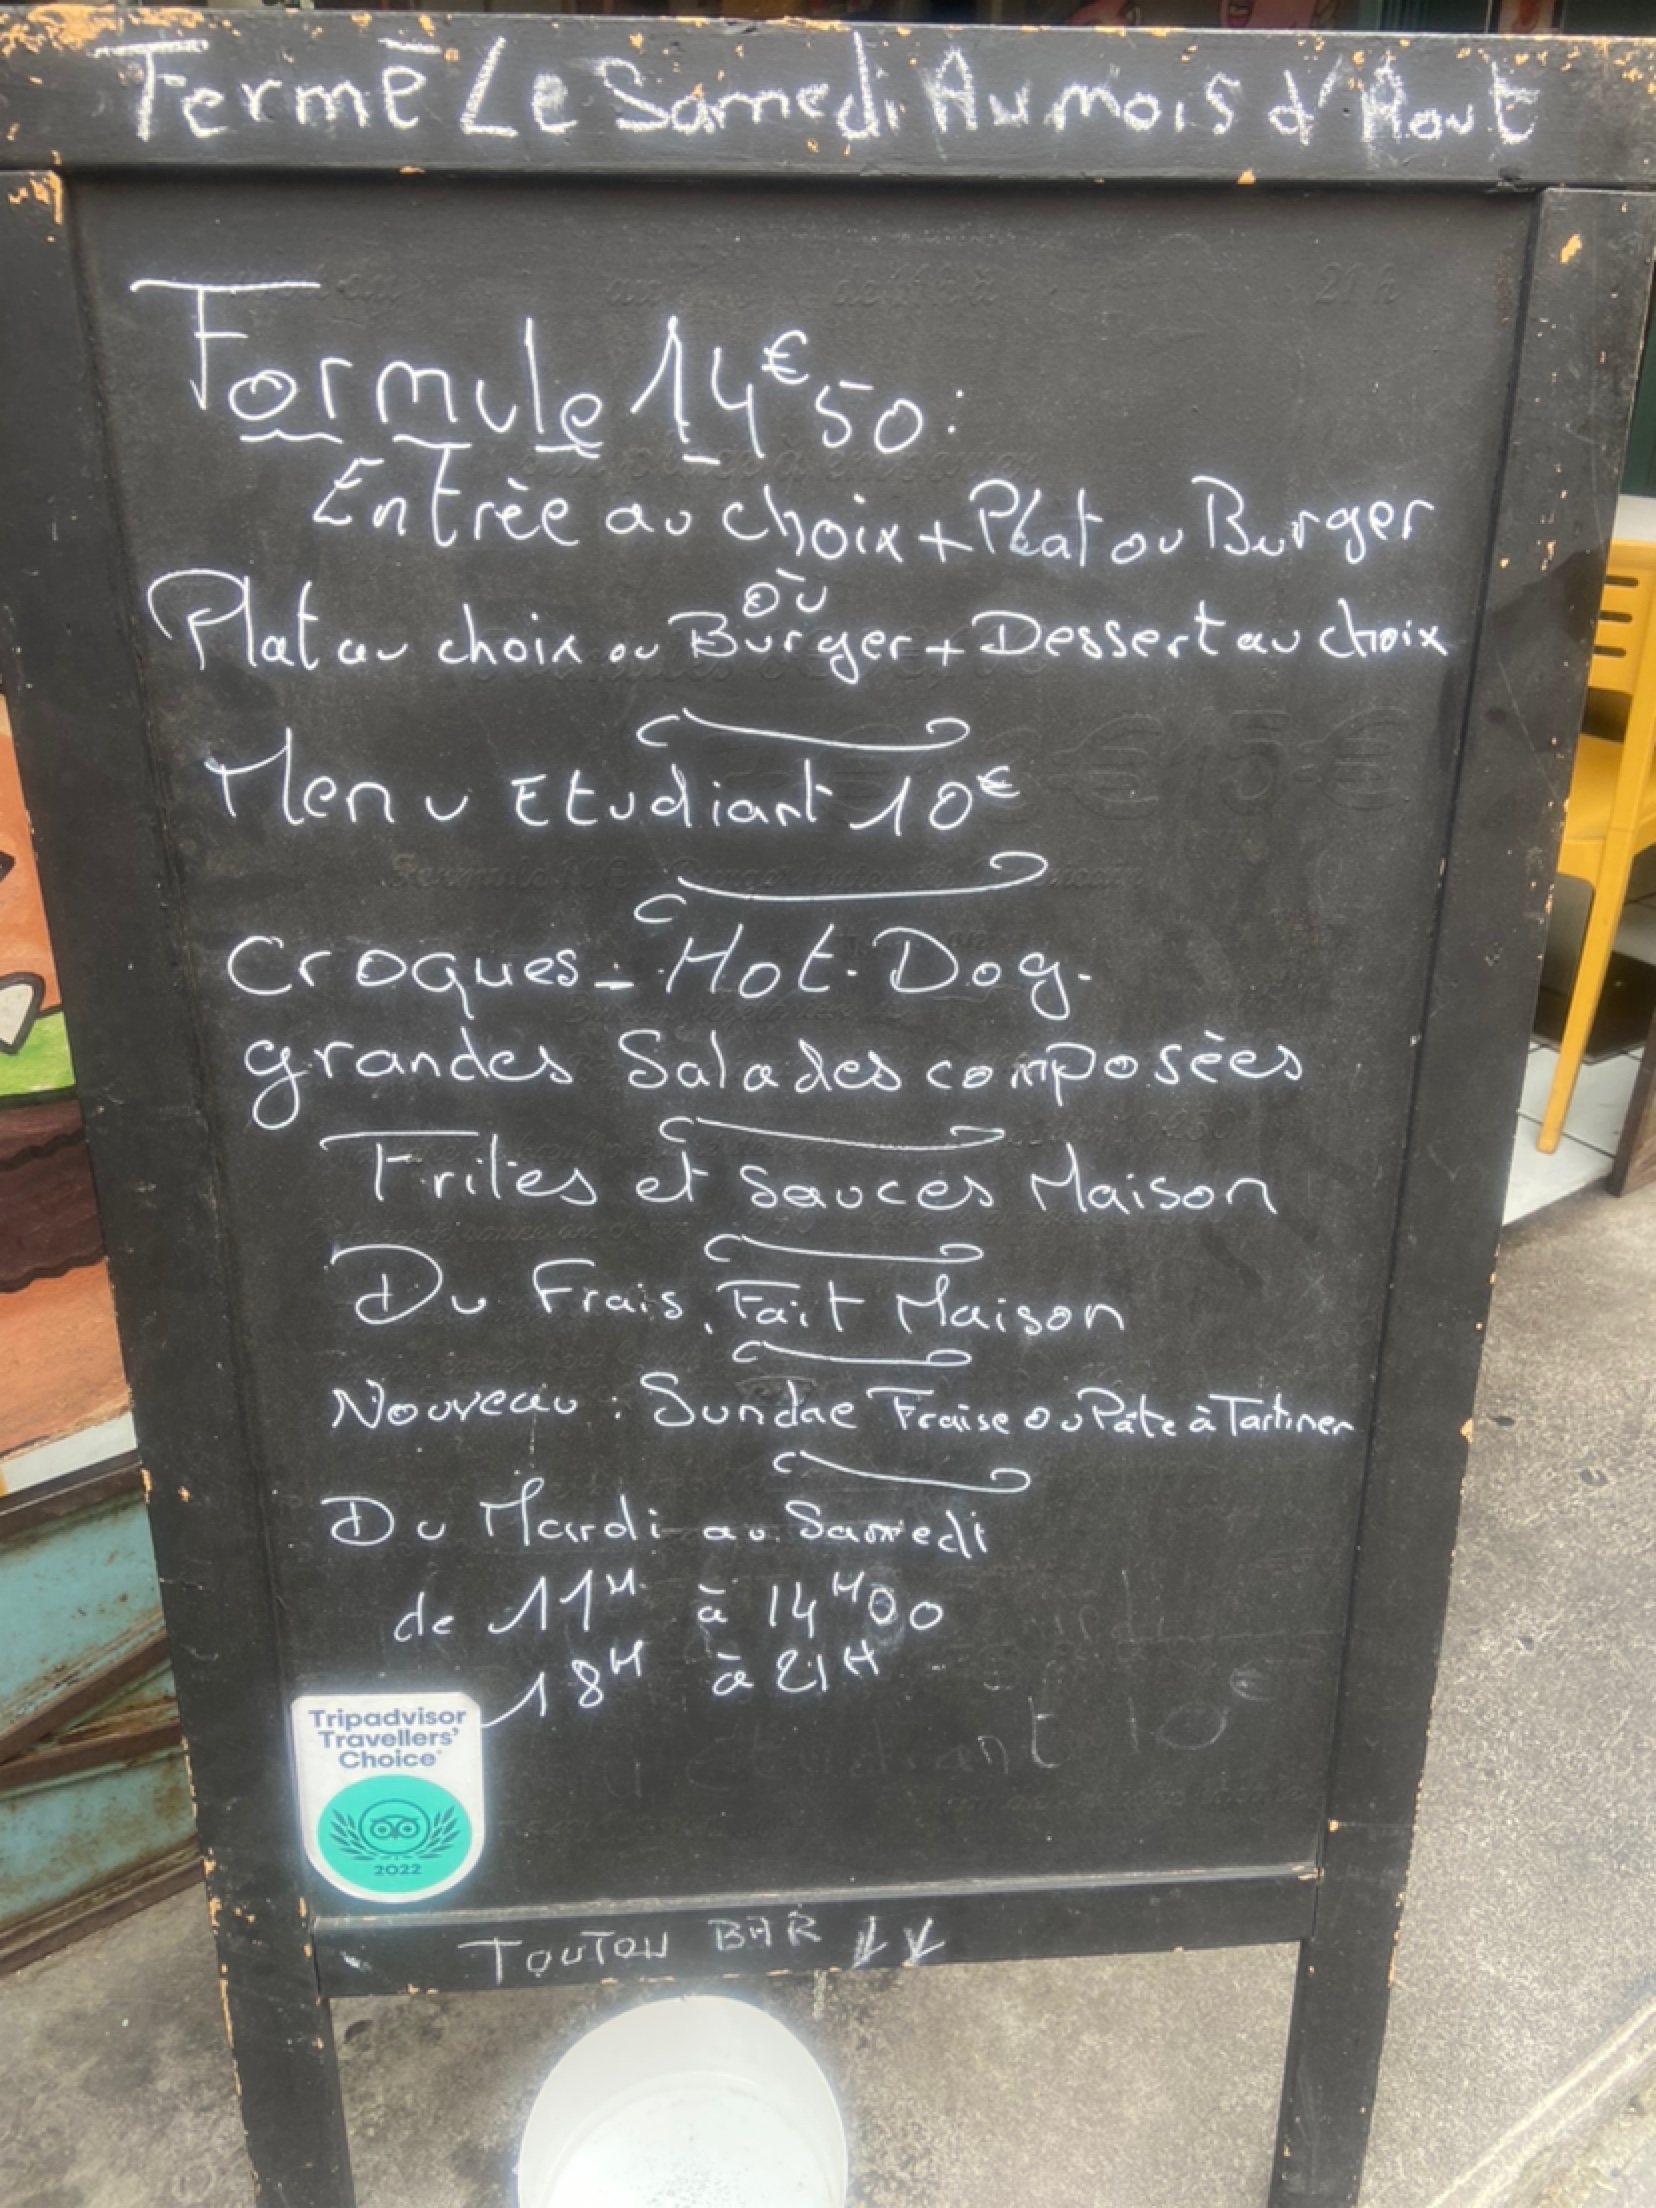 Fermé Le Samedi Au mois d'Aout
Formule 14€50 :
Entrèe au choix + Plat ou Burger
où
Plat au choix ou Burger + Dessert au choix
Menu Etudiant 10€
Croques - Hot-Dog-
grandes Salades composèes
Frites et Sauces Maison
Du Frais, Fait Maison
Nouveau : Sundae Fraise ou Pâte à Tartiner
Du Mardi au Samedi
de 11H à 14H00
18H à 21H
Tripadvisor
Travellers'
Choice
2022
TOUTOU BAR ↓↓